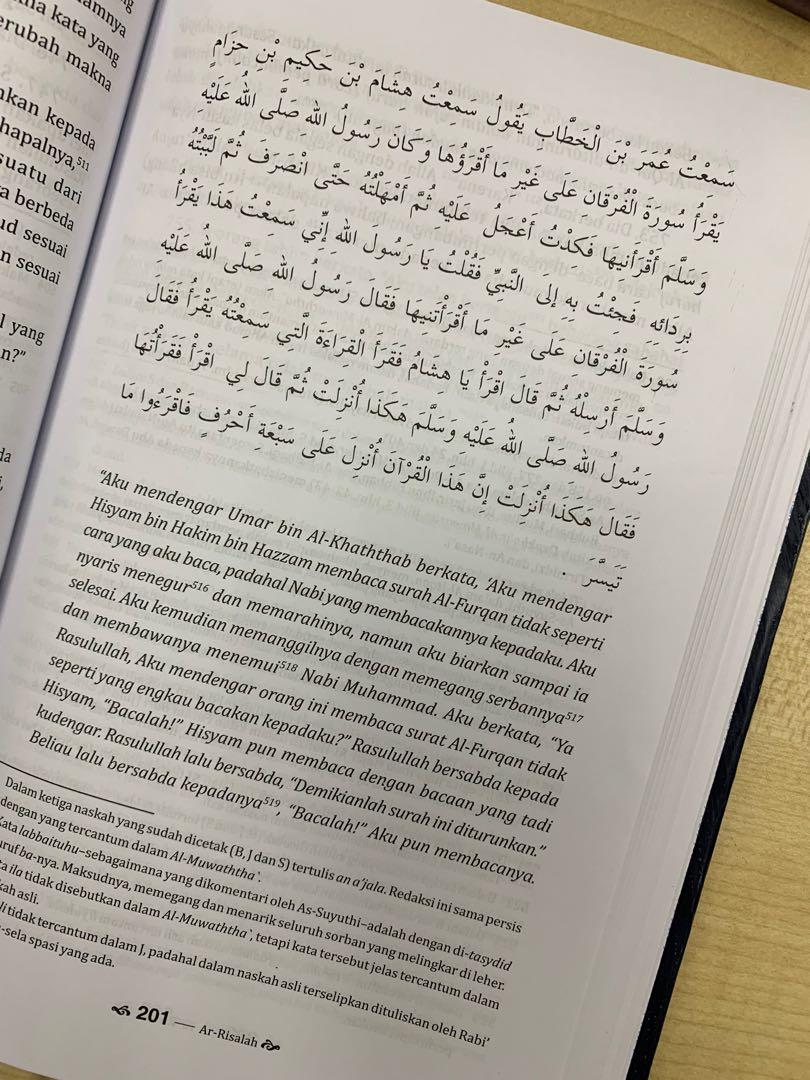 amnya
na kata yang
erubah makna
nkan kepada
hapalnya,⁵¹¹
suatu dari
a berbeda
ud sesuai
n sesuai
l yang
n?"
سَمِعْتُ عُمَرَ بْنَ الْخَطَّابِ يَقُولُ سَمِعْتُ هِشَامَ بْنَ حَكِيمِ بْنِ حِزَامٍ
يَقْرَأُ سُورَةَ الْفُرْقَانِ عَلَى غَيْرِ مَا أَقْرَؤُهَا وَكَانَ رَسُولُ اللهِ صَلَّى اللهُ عَلَيْهِ
وَسَلَّمَ أَقْرَأَنِيهَا فَكِدْتُ أَعْجَلُ عَلَيْهِ ثُمَّ أَمْهَلْتُهُ حَتَّى انْصَرَفَ ثُمَّ لَبَّبْتُهُ
بِرِدَائِهِ فَجِئْتُ بِهِ إلى النَّبِيِّ فَقُلْتُ يَا رَسُولَ اللهِ إِنِّي سَمِعْتُ هَذَا يَقْرَأُ
سُورَةَ الْفُرْقَانِ عَلَى غَيْرِ مَا أَقْرَأْتَنِيهَا فَقَالَ رَسُولُ اللهِ صَلَّى اللهُ عَلَيْهِ
وَسَلَّمَ أَرْسِلْهُ ثُمَّ قَالَ اقْرَأْ يَا هِشَامُ فَقَرَأَ الْقِرَاءَةَ الَّتِي سَمِعْتُهُ يَقْرَأُ فَقَالَ
رَسُولُ اللهِ صَلَّى اللهُ عَلَيْهِ وَسَلَّمَ هَكَذَا أُنْزِلَتْ ثُمَّ قَالَ لِي اقْرَأْ فَقَرَأْتُهَا
فَقَالَ هَكَذَا أُنْزِلَتْ إِنَّ هَذَا الْقُرْآنَ أُنْزِلَ عَلَى سَبْعَةِ أَحْرُفٍ فَاقْرَءُوا مَا
تَيَسَّرَ .
"Aku mendengar Umar bin Al-Khaththab berkata, 'Aku mendengar
Hisyam bin Hakim bin Hazzam membaca surah Al-Furqan tidak seperti
cara yang aku baca, padahal Nabi yang membacakannya kepadaku. Aku
nyaris menegur⁵¹⁶ dan memarahinya, namun aku biarkan sampai ia
selesai. Aku kemudian memanggilnya dengan memegang serbannya⁵¹⁷
dan membawanya menemui⁵¹⁸ Nabi Muhammad. Aku berkata, "Ya
Rasulullah, Aku mendengar orang ini membaca surat Al-Furqan tidak
seperti yang engkau bacakan kepadaku?" Rasulullah bersabda kepada
Hisyam, "Bacalah!" Hisyam pun membaca dengan bacaan yang tadi
kudengar. Rasulullah lalu bersabda, "Demikianlah surah ini diturunkan."
Beliau lalu bersabda kepadanya⁵¹⁹, "Bacalah!" Aku pun membacanya.
Dalam ketiga naskah yang sudah dicetak (B, J dan S) tertulis an a'jala. Redaksi ini sama persis
dengan yang tercantum dalam Al-Muwaththa'.
Kata labbaituhu–sebagaimana yang dikomentari oleh As-Suyuthi–adalah dengan di-tasydid
uruf ba-nya. Maksudnya, memegang dan menarik seluruh sorban yang melingkar di leher.
ta ila tidak disebutkan dalam Al-Muwaththa', tetapi kata tersebut jelas tercantum dalam
kah asli.
li tidak tercantum dalam J, padahal dalam naskah asli terselipkan dituliskan oleh Rabi'
-sela spasi yang ada.
201 — Ar-Risalah